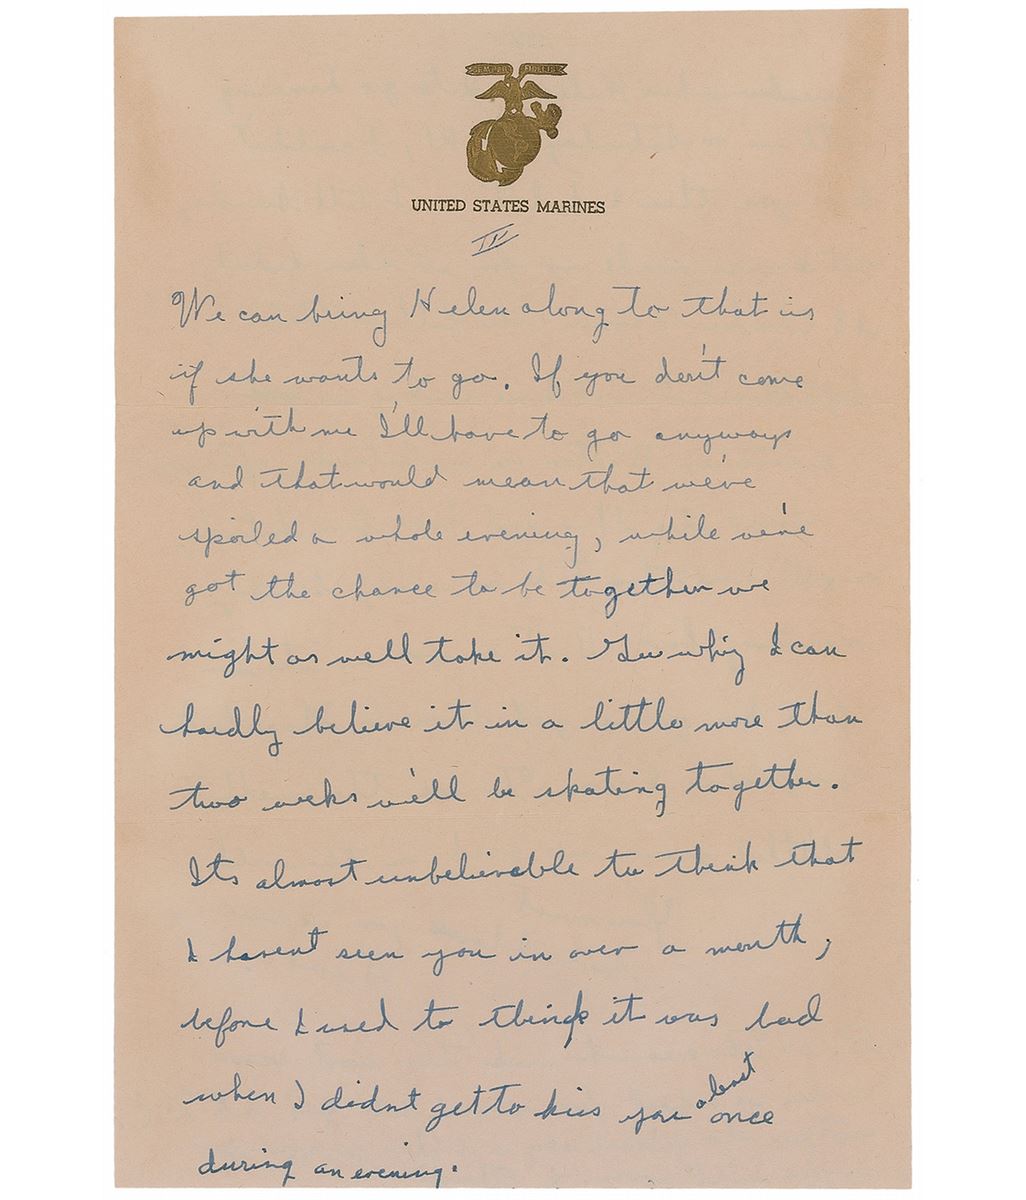 SEMPER FIDELIS
UNITED STATES MARINES
IV
We can bring Helen along to that is
if she wants to go. If you don't come
up with me I'll have to go anyways
and that would mean that we've
spoiled a whole evening, while we've
got the chance to be together we
might as well take it. Gee whiz I can
hardly believe it in a little more than
two weeks we'll be skating together.
It's almost unbelievable to think that
I haven't seen you in over a month,
before I used to think it was bad
when I didn't get to kiss you a least once
during an evening.